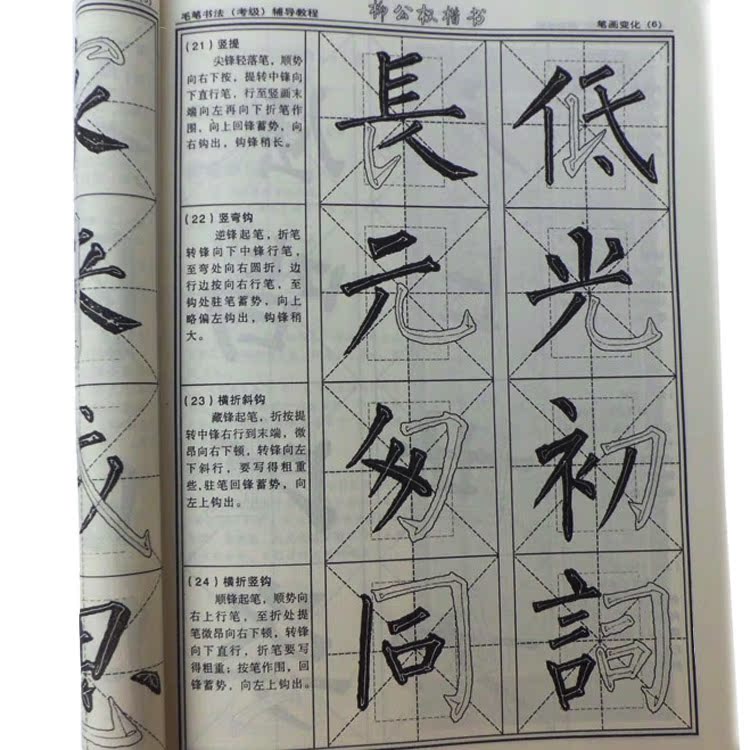 毛笔书法（考级）辅导教程 柳公权楷书 笔画变化（6）
（21）竖提
尖锋轻落笔，顺势
向右下按，提转中锋向
下直行笔，行至竖画末
端向左再向下折笔作
围，向上回锋蓄势，向
右钩出，钩锋稍长。
長 低
（22）竖弯钩
逆锋起笔，折笔
转锋向下中锋行笔，
至弯处向右圆折，边
行边按向右行笔，至
钩处驻笔蓄势，向上
略偏左钩出，钩锋稍
大。
元 光
（23）横折斜钩
藏锋起笔，折按提
转中锋右行到末端，微
昂向右下顿，转锋向左
下斜行，要写得粗重
些，驻笔回锋蓄势，向
左上钩出。
初
（24）横折竖钩
顺锋起笔，顺势向
右上行笔，至折处提
笔微昂向右下顿，转锋
向下直行，折笔要写
得粗重；按笔作围，回
锋蓄势，向左上钩出。
同 詞